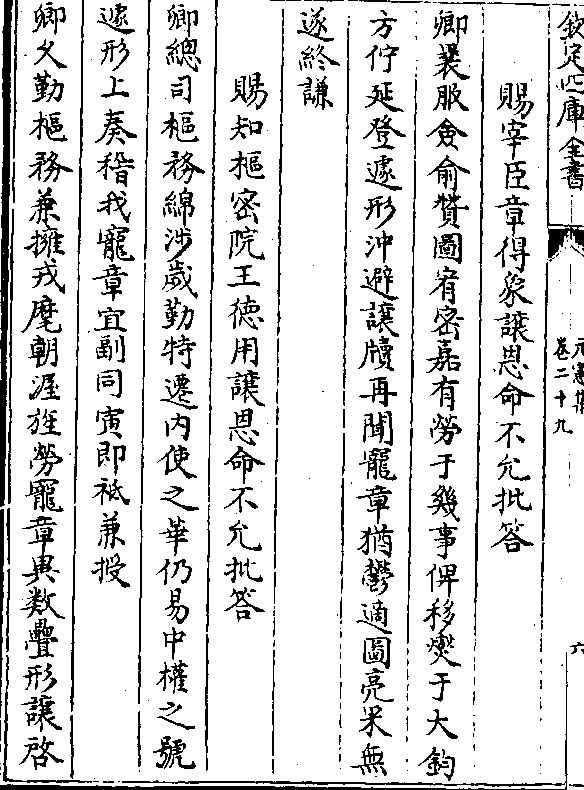 欽定四庫全書
元憲集
卷二十九
六
賜宰臣章得象讓恩命不允批答
卿襲服僉俞贊圖宥密嘉有勞于幾事俾移爕于大鈞
方佇延登遽形沖避讓牘再聞寵章猶鬱適圖亮采無
遂終謙
賜知樞密院王德用讓恩命不允批答
卿總司樞務綿涉歲勤特遷內使之華仍易中權之號
遽形上奏稽我寵章宜副同寅即祗兼授
卿久勤樞務兼擁戎麾朝渥旌勞寵章異數疊形讓啓